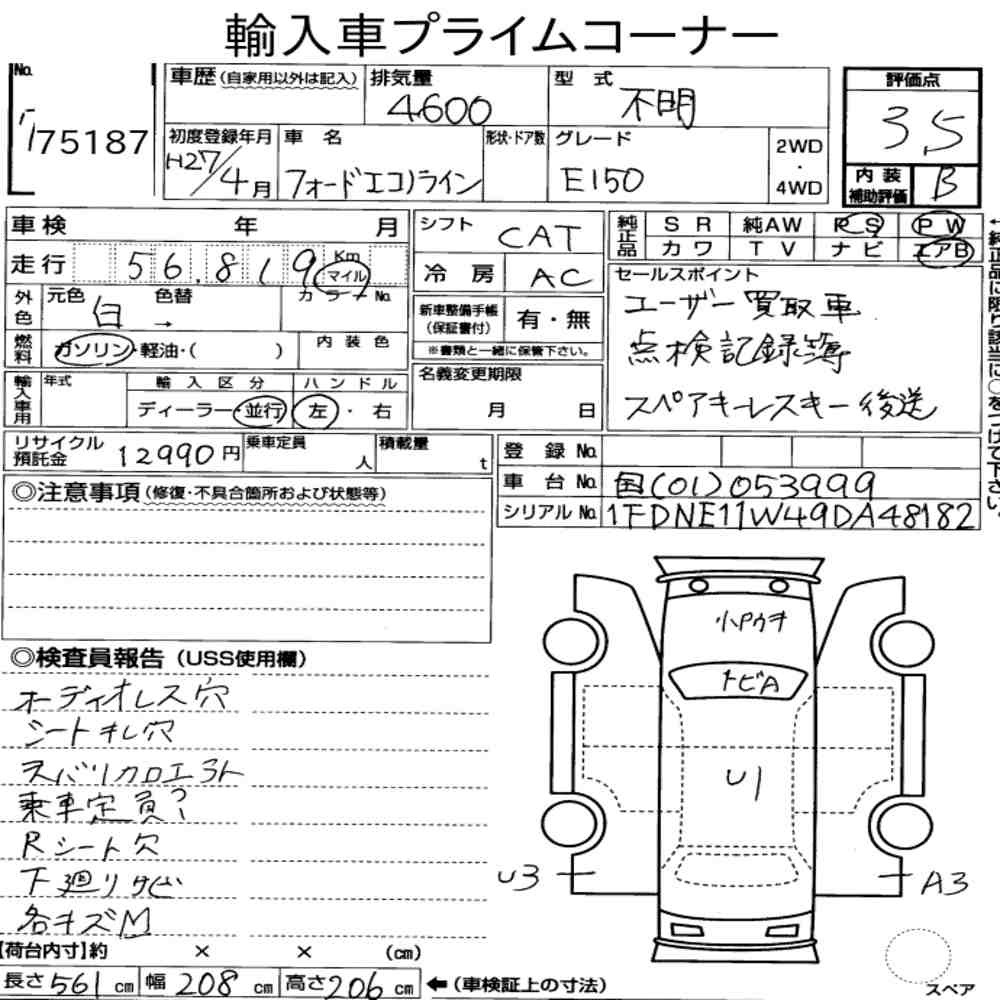 輸入車プライムコーナー
No. 75187
車歴(自家用以外は記入)
排気量 4600
型式 不明
評価点 3.5
初度登録年月 H27/4月
車名 フォードエコノライン
形状・ドア数
グレード E150
2WD・4WD
内装補助評価 B
車検 年 月
走行 56,819 Km マイル
外色 元色 白 → 色替 カラーNo.
燃料 ガソリン・軽油・( ) 内装色
輸入車用 年式 輸入区分 ディーラー・並行 ハンドル 左・右
シフト CAT
冷房 AC
新車整備手帳(保証書付) 有・無
※書類と一緒に保管下さい。
名義変更期限 月 日
純正品 SR 純AW PS PW
カワ TV ナビ エアB
セールスポイント
ユーザー買取車
点検記録簿
スペアキーレスキー後送
←純正品に限り該当に○をつけて下さい。
リサイクル預託金 12990円
乗車定員 人
積載量 t
登録No.
車台No. 国(01)053999
シリアルNo. 1FDNE11W49DA48182
◎注意事項(修復・不具合箇所および状態等)
◎検査員報告(USS使用欄)
オーディオレス穴
シートキレ穴
乗車定員?
Rシート穴
下廻りサビ
各キズM
小Pウキ
トビA
U1
U3
A3
【荷台内寸】約 × × (cm)
長さ561cm 幅208cm 高さ206cm ←(車検証上の寸法)
スペア